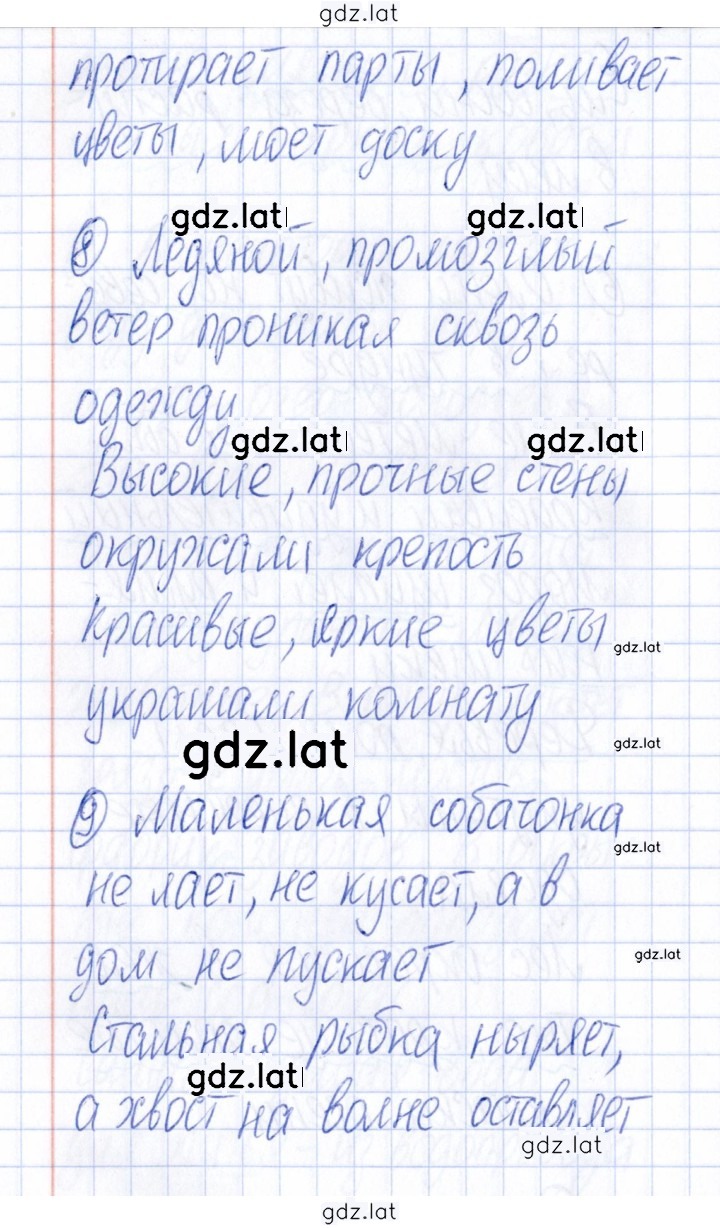 gdz.lat
протирает парты, поливает
цветы, моет доску
gdz.lat gdz.lat
8 Ледяной, промозглый
ветер проникая сквозь
одежду
gdz.lat gdz.lat
Высокие, прочные стены
окружали крепость
Красивые, яркие цветы
gdz.lat
украшали комнату
gdz.lat gdz.lat
9 Маленькая собачонка
gdz.lat
не лает, не кусает, а в
дом не пускает
gdz.lat
Стальная рыбка ныряет,
gdz.lat
а хвост на волне оставляет
gdz.lat
gdz.lat